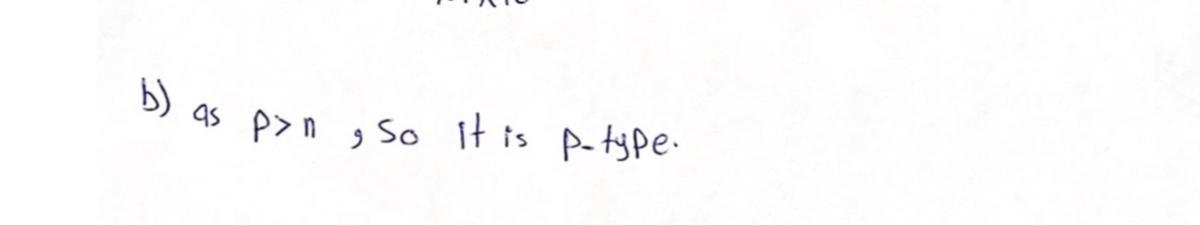 b) as p>n , so it is p-type.